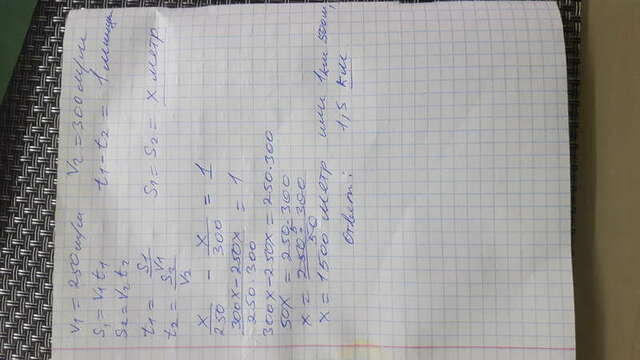 V1 = 250 м/м V2 = 300 м/м
S1 = V1 t1 t1 - t2 = 1 минута
S2 = V2 t2
t1 = S1/V1 S1 = S2 = x метр
t2 = S2/V2
x/250 - x/300 = 1
300x - 250x / 250·300 = 1
300x - 250x = 250·300
50x = 250·300
x = 250·300 / 50
x = 1500 метр или 1 км 500 м,
Ответ: 1,5 км